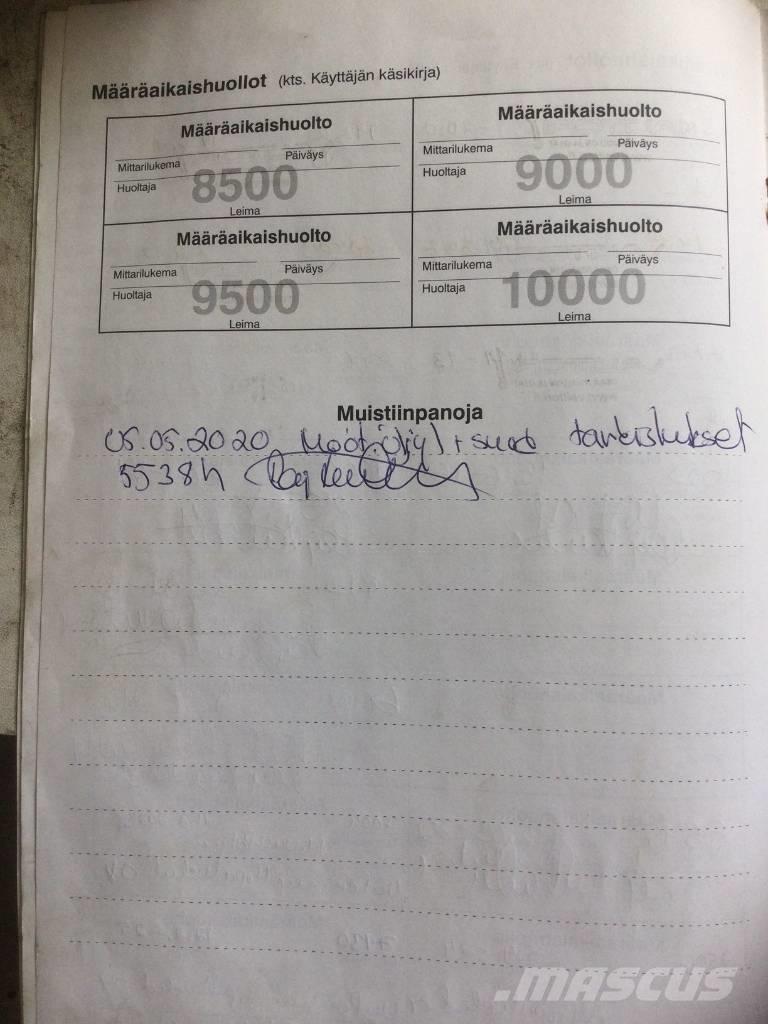 Määräaikaishuollot (kts. Käyttäjän käsikirja)
Määräaikaishuolto
Mittarilukema Päiväys
Huoltaja 8500
Leima
Määräaikaishuolto
Mittarilukema Päiväys
Huoltaja 9000
Leima
Määräaikaishuolto
Mittarilukema Päiväys
Huoltaja 9500
Leima
Määräaikaishuolto
Mittarilukema Päiväys
Huoltaja 10000
Leima
Muistiinpanoja
05.05.2020 + tarkistukset
5538h
.MASCUS